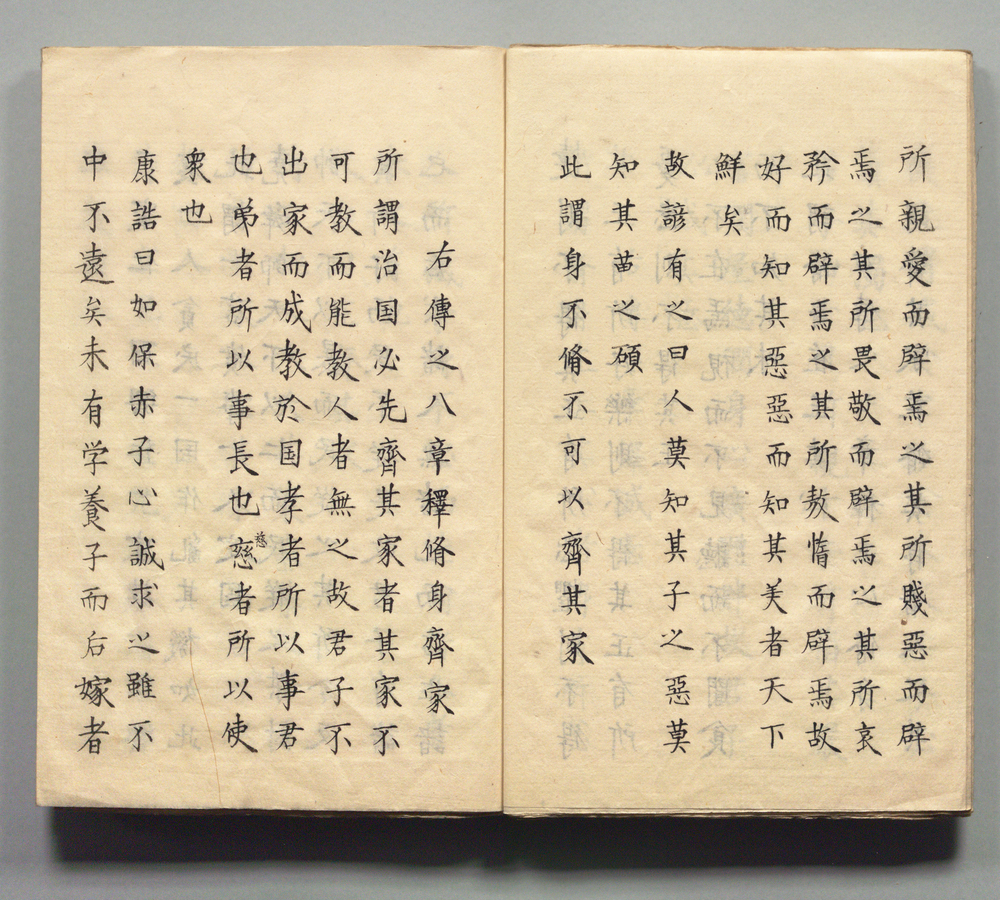 所親愛而辟焉之其所賤惡而辟
焉之其所畏敬而辟焉之其所哀
矜而辟焉之其所敖惰而辟焉故
好而知其惡惡而知其美者天下
鮮矣
故諺有之曰人莫知其子之惡莫
知其苗之碩
此謂身不脩不可以齊其家
右傳之八章釋脩身齊家
所謂治国必先齊其家者其家不
可教而能教人者無之故君子不
出家而成教於国孝者所以事君
也弟者所以事長也慈者所以使
慈
衆也
康誥曰如保赤子心誠求之雖不
中不遠矣未有学養子而后嫁者